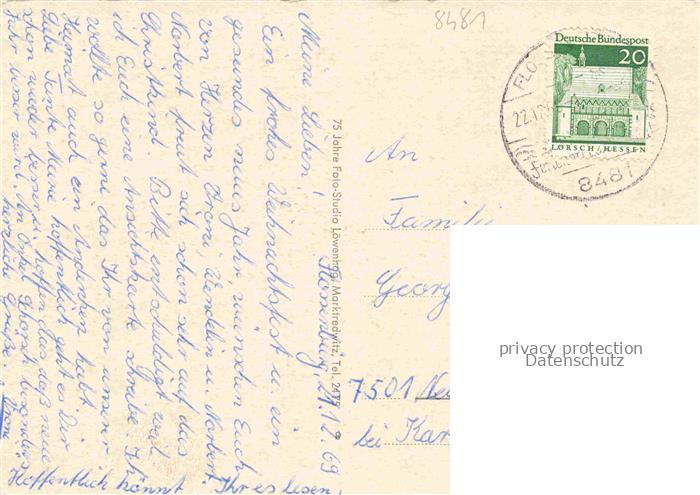 8481
Deutsche Bundespost
20
LORSCH/HESSEN
FLO
22.12
8481
75 Jahre Foto-Studio Löwenhag, Marktredwitz, Tel. 2475
21.12.69
Meine Lieben!
Ein frohes Weihnachtsfest u. ein
gesundes neues Jahr, wünschen Euch
von Herzen Vroni, Wendelin u. Norbert.
Norbert freut sich schon sehr auf das
Christkind. Bitte entschuldigt weil
ich Euch eine Ansichtskarte schreibe. Ich
wollte so gern das Ihr von unserer
Heimat auch ein Andenken habt.
Liebe Tante Marie hoffentlich geht es Dir
schon wieder besser. Wir hoffen das, daß neue
Jahr besser wird. An Onkel besonders
herzliche Grüße. Vroni
Hoffentlich könnt Ihr es lesen.
An
Familie
Georg
7501 Neu
bei Kar
privacy protection
Datenschutz